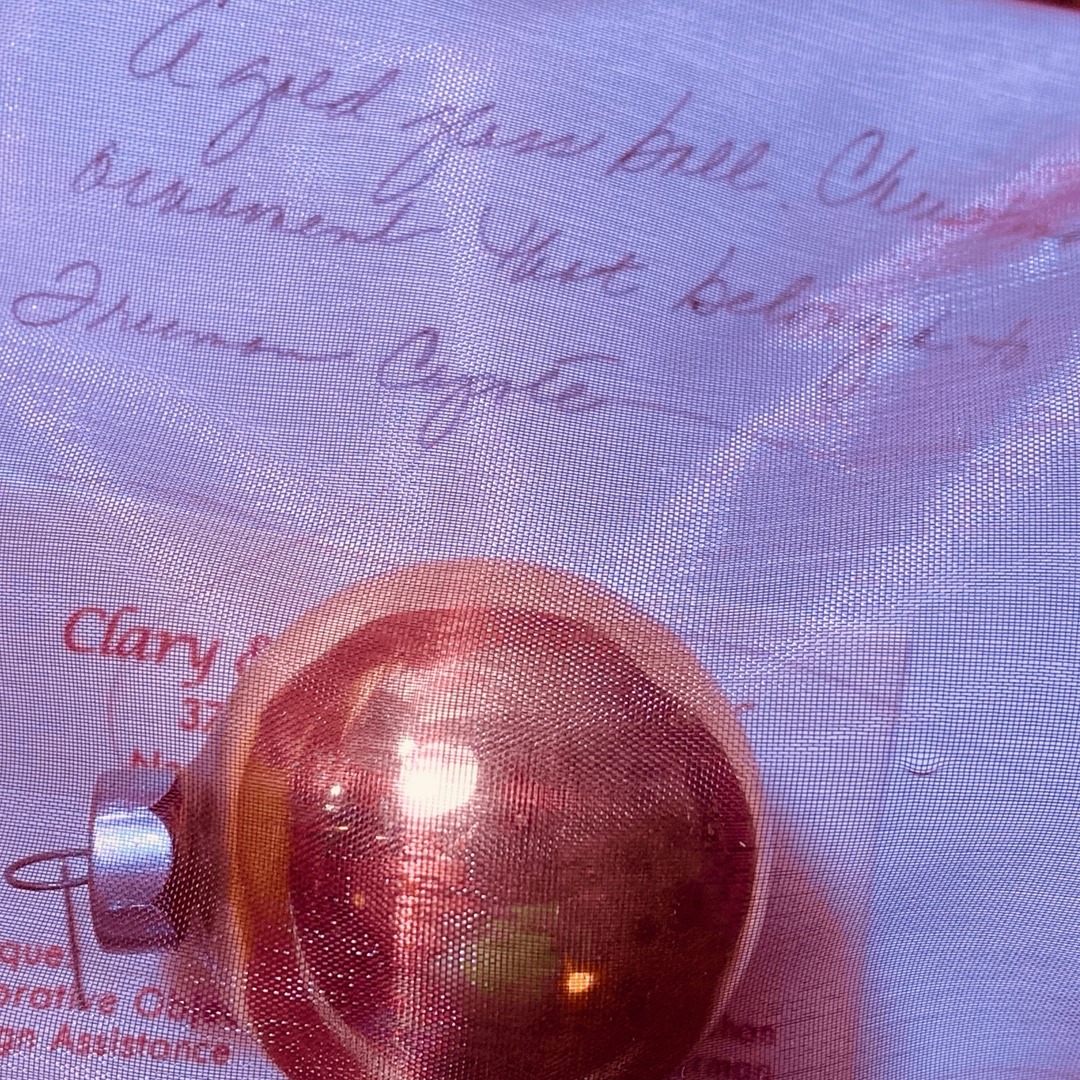 Aged glass ball Chris
ornament that belong to
Truman Capote
Clary &
37
que
orative O
gn Assistance